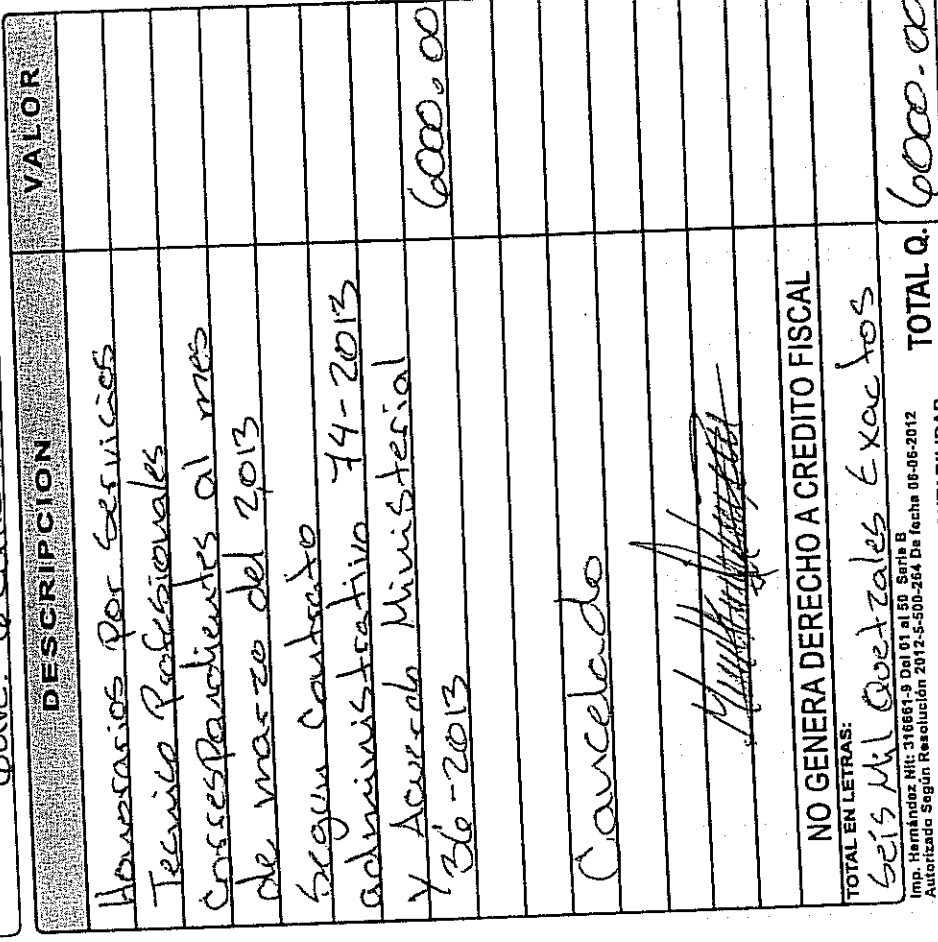 DESCRIPCION VALOR
Honorarios Por Servicios
Tecnico Profesionales
Correspondientes al mes
de marzo del 2013
Segun Contrato
administrativo 74-2013
Y Acuerdo Ministerial 6000.00
36-2013
Cancelado
NO GENERA DERECHO A CREDITO FISCAL
TOTAL EN LETRAS:
Seis Mil Quetzales Exactos
Imp. Hernández Nit: 316661-9 Del 01 al 50 Serie B
Autorizado Según Resolución 2012-5-500-264 De fecha 06-06-2012
TOTAL Q. 6000.00